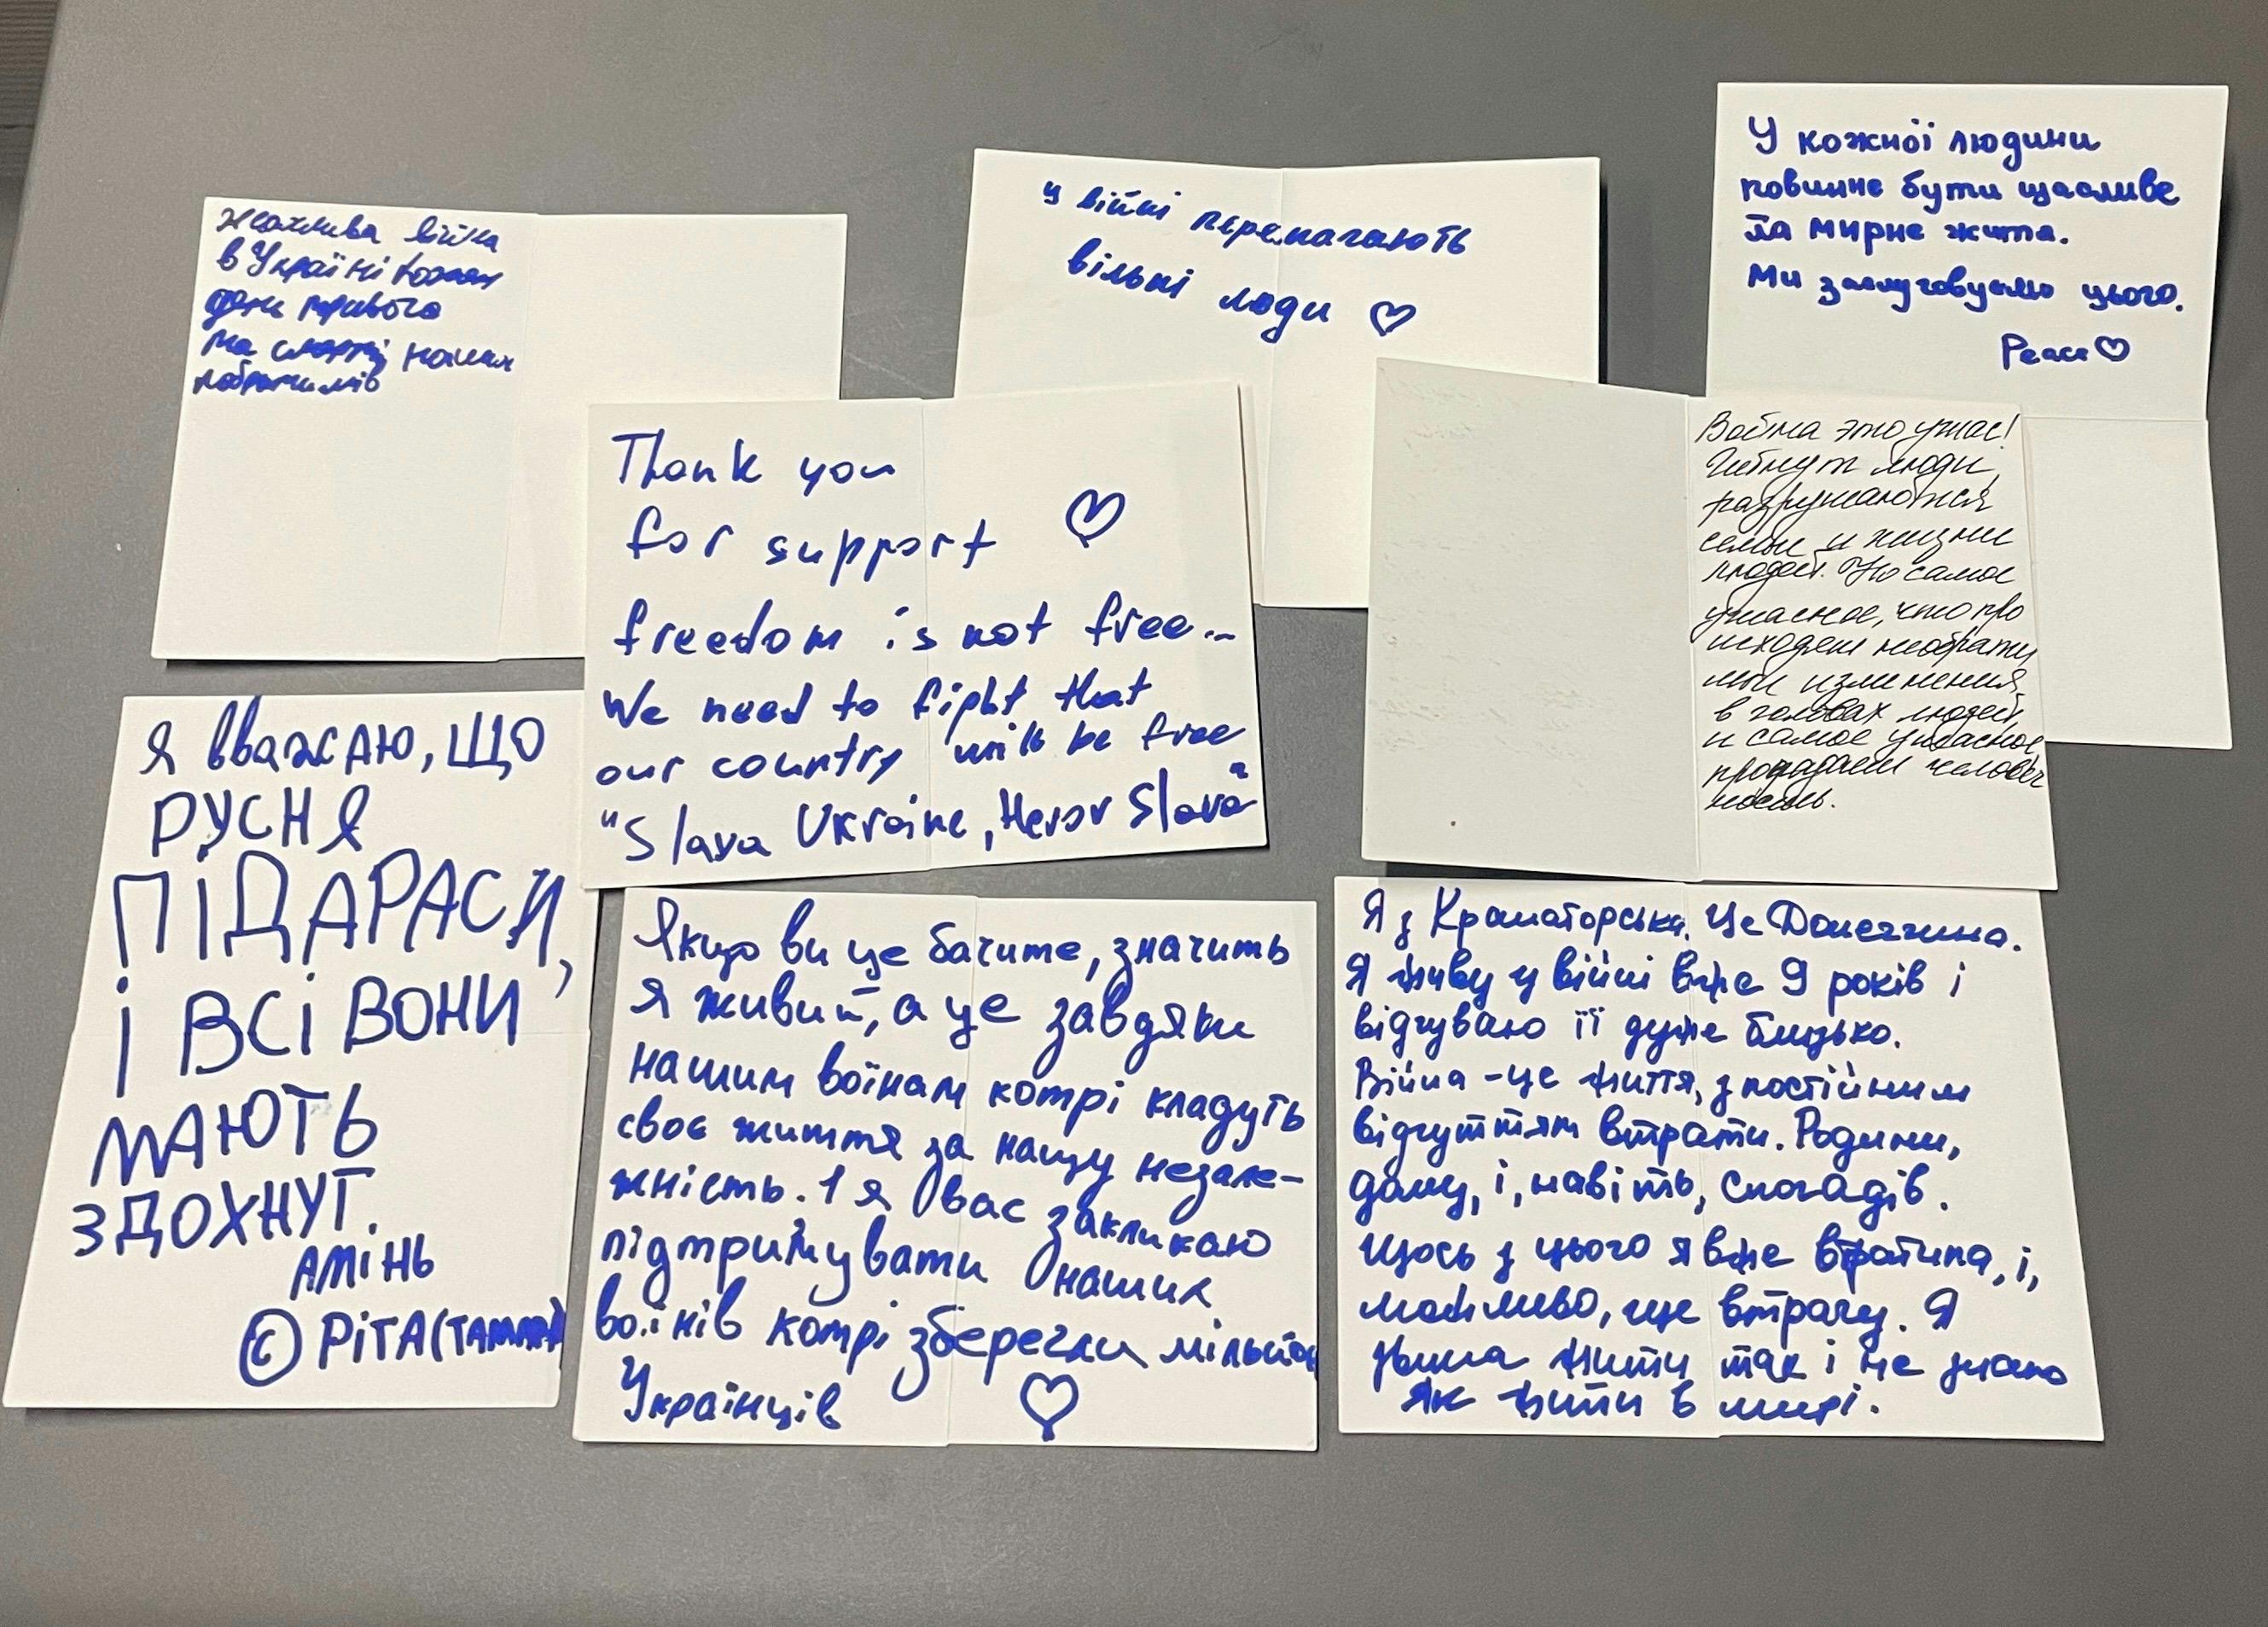 Жахлива війна
в Україні кожен
день тривога
на смерті наших
побратимів
у війні перемагають
вільні люди ♡
У кожної людини
повинне бути щасливе
та мирне життя.
Ми заслуговуємо цього.
Peace ♡
Thank you
for support ♡
freedom is not free...
We need to fight that
our country will be free
"Slava Ukraine, Heror Slava"
Война это ужас!
Гибнут люди,
разрушаются
семьи и жизни
людей. Но самое
ужасное, что про
исходят необрати
мые изменения
в головах людей,
и самое ужасное
пропадает человеч
ность.
Я вважаю, що
РУСНЯ
ПІДАРАСИ,
І ВСІ ВОНИ
МАЮТЬ
ЗДОХНУТ.
АМІНЬ
© РІТА (
Якщо ви це бачите, значить
я живий, а це завдяки
нашим воїнам котрі кладуть
своє життя за нашу незале-
жність. І я вас закликаю
підтримувати наших
воїнів котрі зберегли мільйон
Українців ♡
Я з Краматорська. Це Донеччина.
Я живу у війні вже 9 років і
відчуваю її дуже близько.
Війна - це життя, з постійним
відчуттям втрати. Родини,
дому, і, навіть, спогадів.
Щось з цього я вже втратила, і,
можливо, ще втрачу. Я
звикла жити так і не знаю
як жити в мирі.